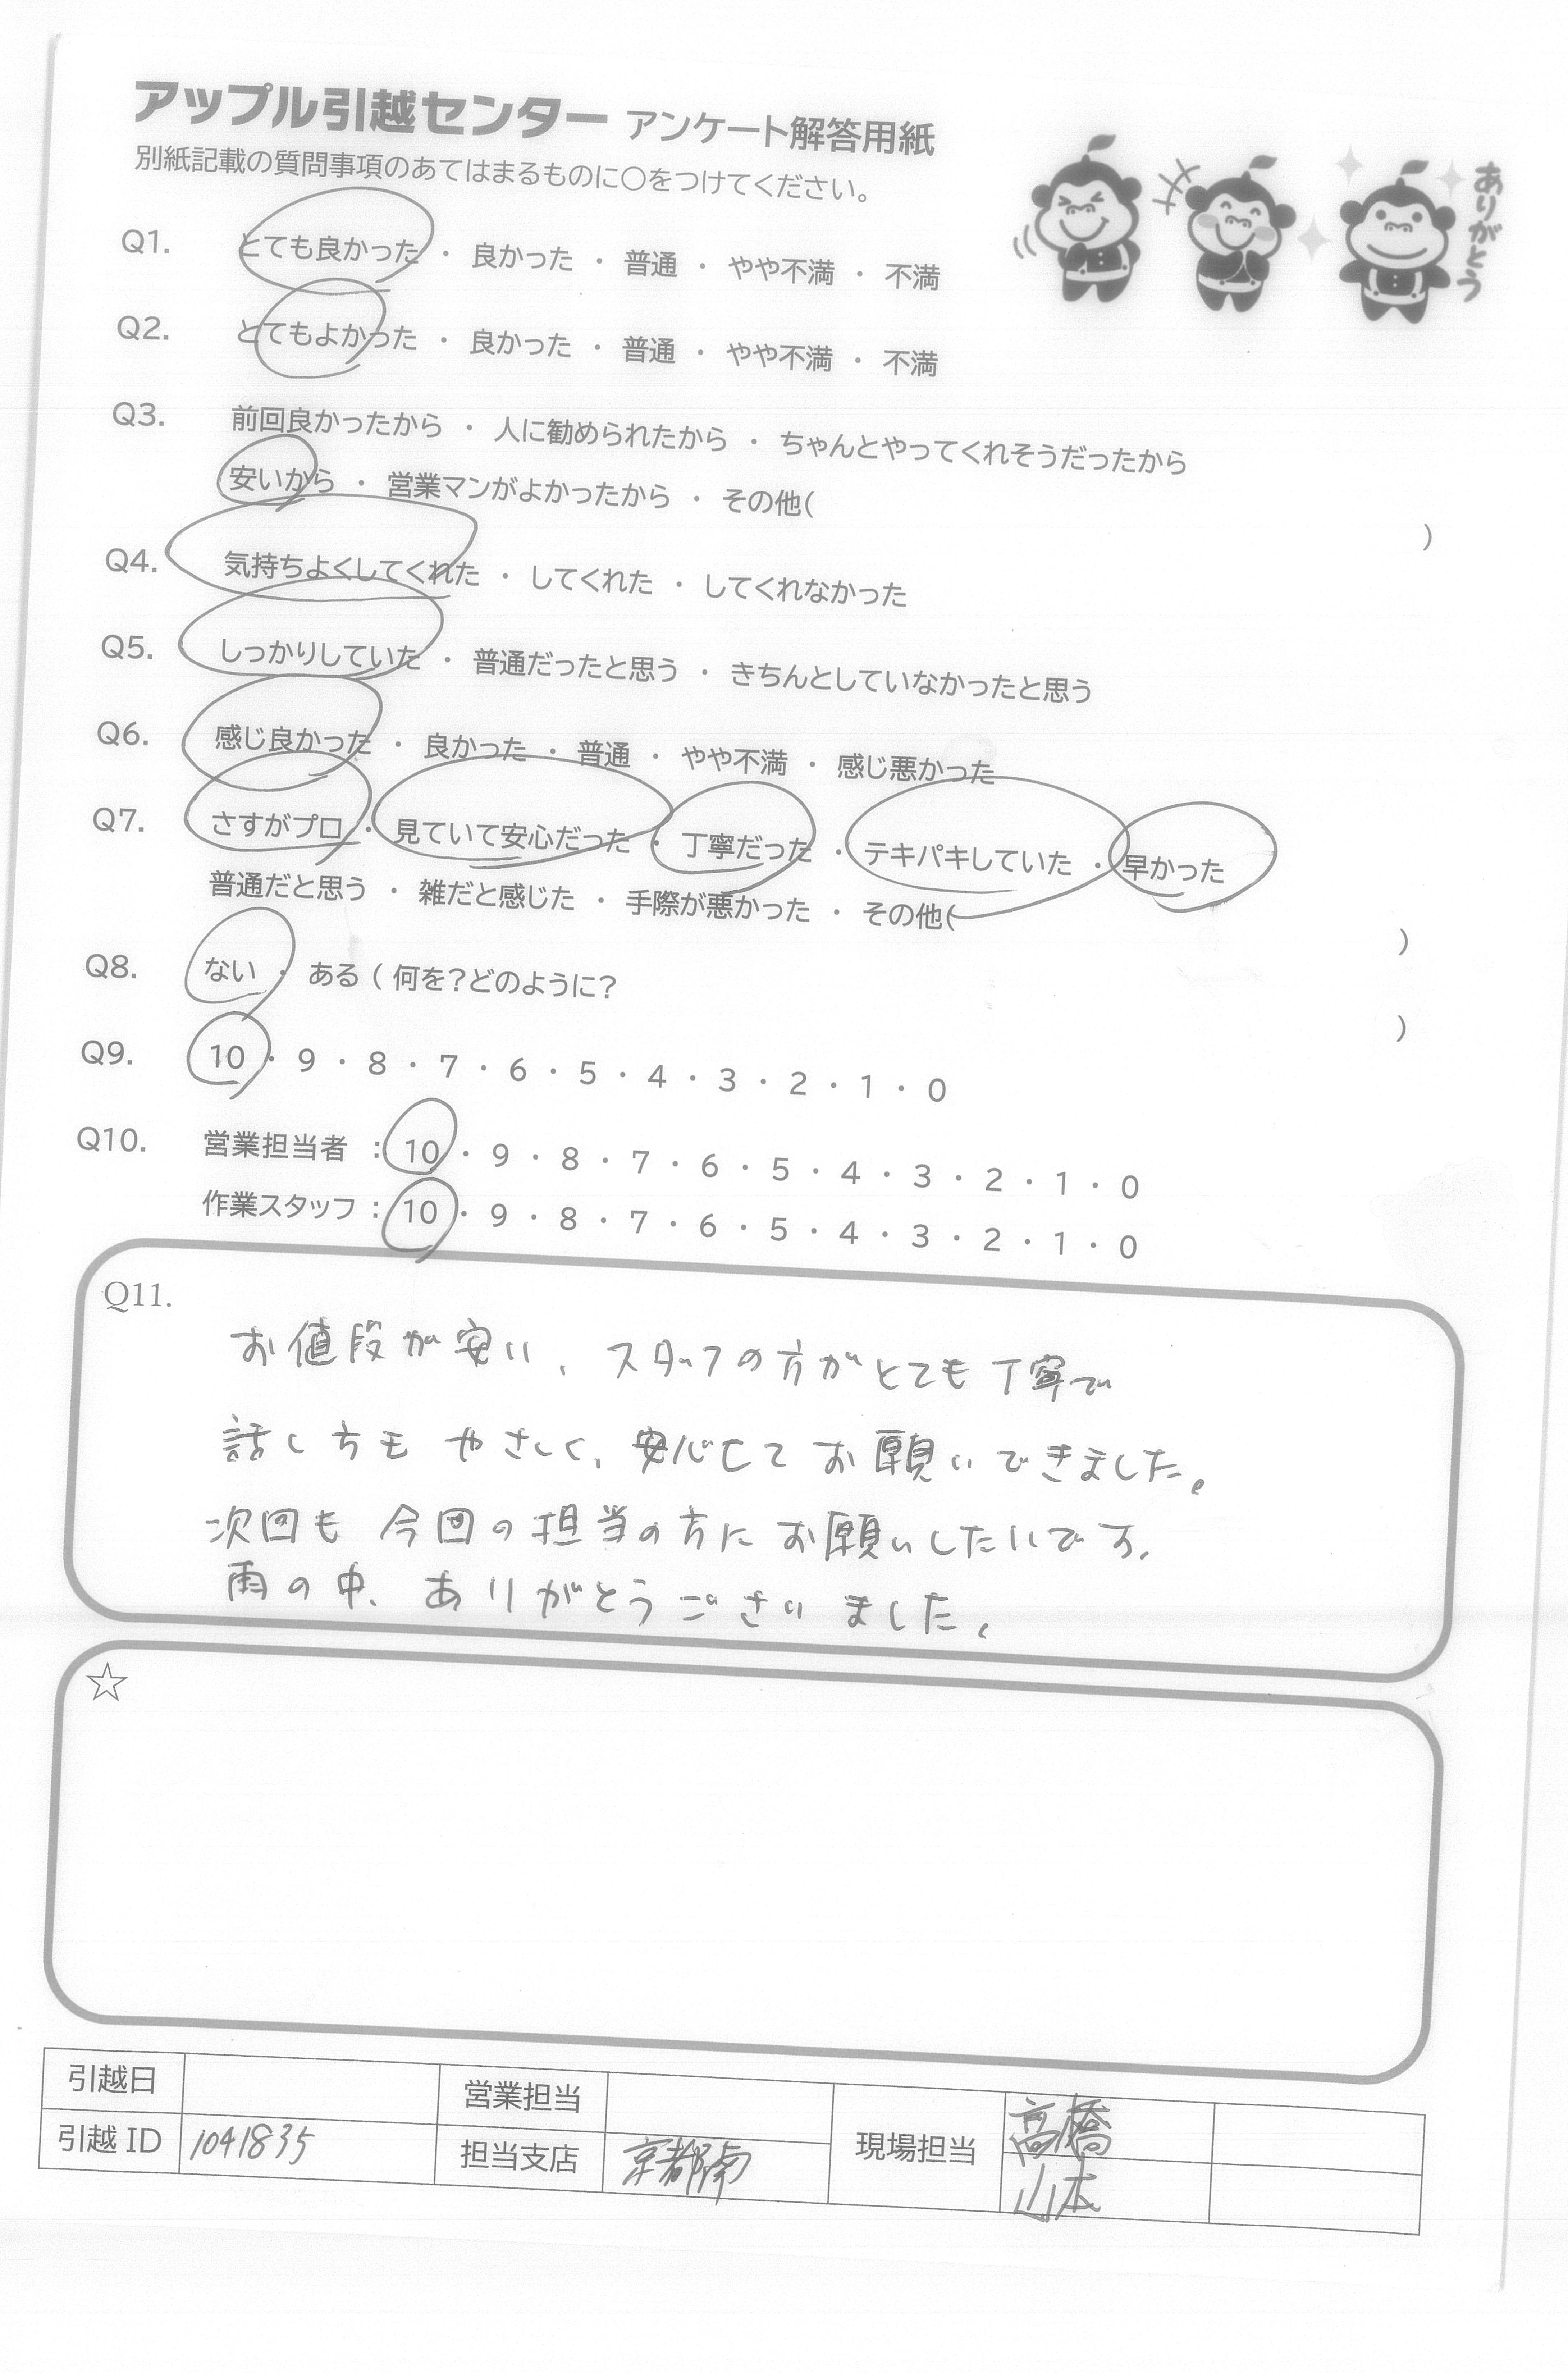 アップル引越センター アンケート解答用紙
別紙記載の質問事項のあてはまるものに○をつけてください。
ありがとう
Q1. とても良かった ・ 良かった ・ 普通 ・ やや不満 ・ 不満
Q2. とてもよかった ・ 良かった ・ 普通 ・ やや不満 ・ 不満
Q3. 前回良かったから ・ 人に勧められたから ・ ちゃんとやってくれそうだったから
安いから ・ 営業マンがよかったから ・ その他( )
Q4. 気持ちよくしてくれた ・ してくれた ・ してくれなかった
Q5. しっかりしていた ・ 普通だったと思う ・ きちんとしていなかったと思う
Q6. 感じ良かった ・ 良かった ・ 普通 ・ やや不満 ・ 感じ悪かった
Q7. さすがプロ ・ 見ていて安心だった ・ 丁寧だった ・ テキパキしていた ・ 早かった
普通だと思う ・ 雑だと感じた ・ 手際が悪かった ・ その他( )
Q8. ない ・ ある ( 何を?どのように? )
Q9. 10 ・ 9 ・ 8 ・ 7 ・ 6 ・ 5 ・ 4 ・ 3 ・ 2 ・ 1 ・ 0
Q10. 営業担当者 : 10 ・ 9 ・ 8 ・ 7 ・ 6 ・ 5 ・ 4 ・ 3 ・ 2 ・ 1 ・ 0
作業スタッフ : 10 ・ 9 ・ 8 ・ 7 ・ 6 ・ 5 ・ 4 ・ 3 ・ 2 ・ 1 ・ 0
Q11.
お値段が安い、スタッフの方がとても丁寧で
話し方も やさしく、安心して お願いできました。
次回も 今回の担当の方に お願いしたいです。
雨の中、ありがとうございました。
☆
引越日 営業担当 現場担当 高橋
引越ID 1041835 担当支店 京都南 山本